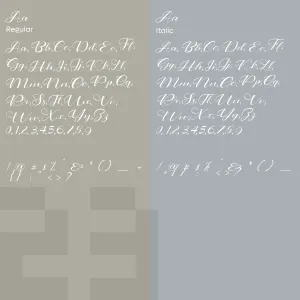 Aa
Regular
Aa, Bb, Cc, Dd, Ee, Ff,
Gg, Hh, Ii, Jj, Kk, Ll,
Mm, Nn, Oo, Pp, Qq,
Rr, Ss, Tt, Uu, Vv,
Ww, Xx, Yy, Zz
0,1,2,3,4,5,6,7,8,9
Aa
Italic
Aa, Bb, Cc, Dd, Ee, Ff,
Gg, Hh, Ii, Jj, Kk, Ll,
Mm, Nn, Oo, Pp, Qq,
Rr, Ss, Tt, Uu, Vv,
Ww, Xx, Yy, Zz
0,1,2,3,4,5,6,7,8,9